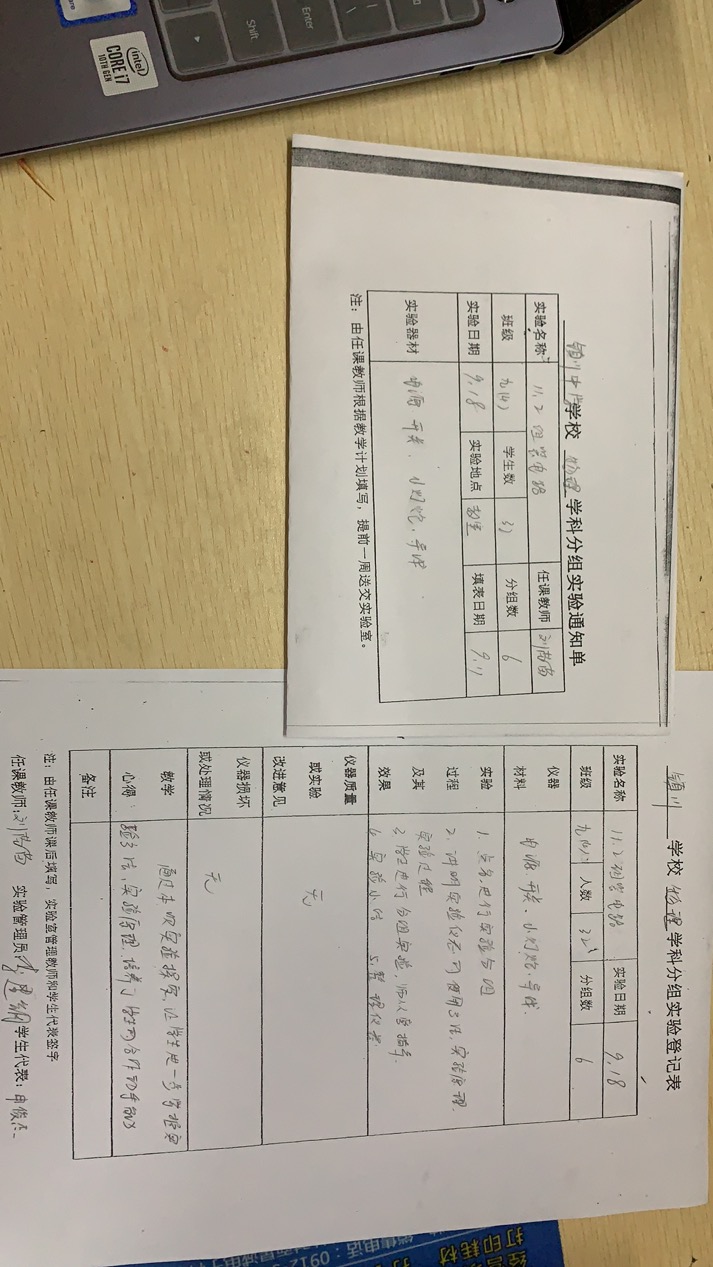 intel
CORE i7
10TH GEN
Enter
Shift
学校 物理 学科分组实验通知单
实验名称 11.2 组装电路 任课教师
班级 九(4) 学生数 分组数 6
实验日期 9.18 实验地点 填表日期 9.11
实验器材 电源 开关、小灯炮、导线
注：由任课教师根据教学计划填写，提前一周送交实验室。
学校 物理 学科分组实验登记表
实验名称 11.2 组装电路 实验日期 9.18
班级 人数 分组数 6
仪器
材料 电源、开关、小灯炮、导线.
实验 1. 点名,进行实验分组
过程 2. 讲明实验仪器的使用方法,实验原理.
及其 实验过程
效果 3. 学生进行分组实验,
实验小结 5. 整理仪器
仪器质量
或实验 无
改进意见
仪器损坏 无
或处理情况
教学 通过本次实验探究,让学生进一步掌握实
心得: 验方法,实验原理,培养了学生的合作动手能力
备注
注：由任课教师课后填写，实验室管理教师和学生代表签字
任课教师: 实验管理员: 学生代表:
销售电话：0912
打印耗材